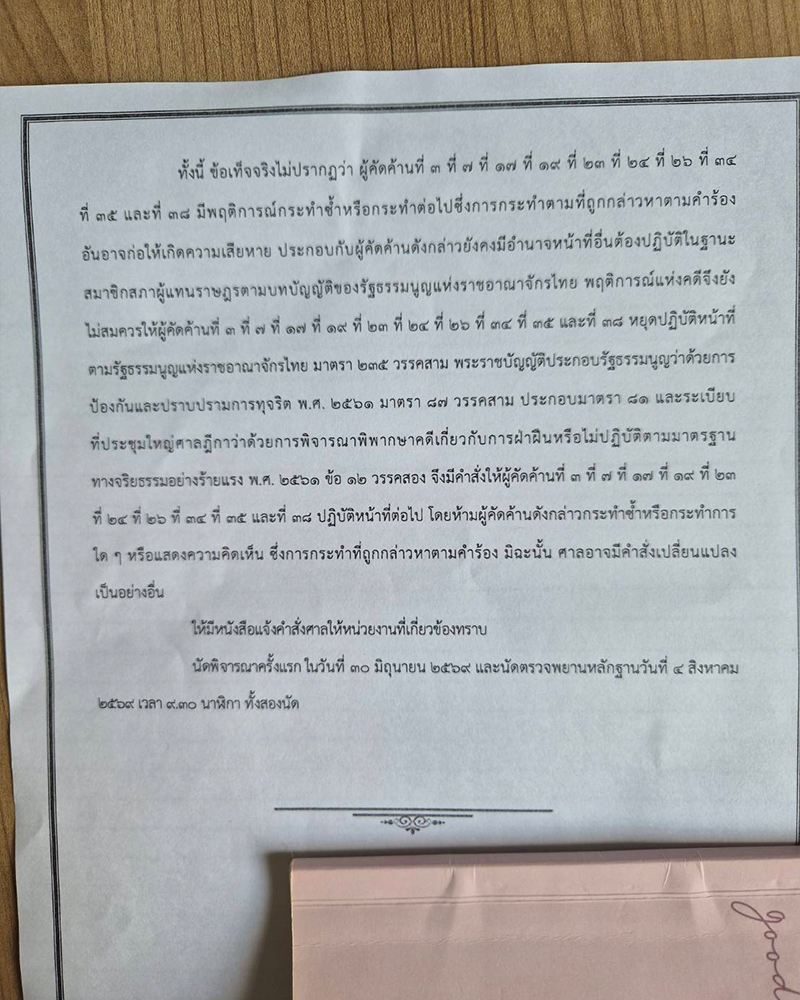 ทั้งนี้ ข้อเท็จจริงไม่ปรากฏว่า ผู้คัดค้านที่ ๓ ที่ ๗ ที่ ๑๗ ที่ ๑๙ ที่ ๒๓ ที่ ๒๔ ที่ ๒๖ ที่ ๓๔
ที่ ๓๕ และที่ ๓๘ มีพฤติการณ์กระทำซ้ำหรือกระทำต่อไปซึ่งการกระทำตามที่ถูกกล่าวหาตามคำร้อง
อันอาจก่อให้เกิดความเสียหาย ประกอบกับผู้คัดค้านดังกล่าวยังคงมีอำนาจหน้าที่อื่นต้องปฏิบัติในฐานะ
สมาชิกสภาผู้แทนราษฎรตามบทบัญญัติของรัฐธรรมนูญแห่งราชอาณาจักรไทย พฤติการณ์แห่งคดีจึงยัง
ไม่สมควรให้ผู้คัดค้านที่ ๓ ที่ ๗ ที่ ๑๗ ที่ ๑๙ ที่ ๒๓ ที่ ๒๔ ที่ ๒๖ ที่ ๓๔ ที่ ๓๕ และที่ ๓๘ หยุดปฏิบัติหน้าที่
ตามรัฐธรรมนูญแห่งราชอาณาจักรไทย มาตรา ๒๓๕ วรรคสาม พระราชบัญญัติประกอบรัฐธรรมนูญว่าด้วยการ
ป้องกันและปราบปรามการทุจริต พ.ศ. ๒๕๖๑ มาตรา ๘๗ วรรคสาม ประกอบมาตรา ๘๑ และระเบียบ
ที่ประชุมใหญ่ศาลฎีกาว่าด้วยการพิจารณาพิพากษาคดีเกี่ยวกับการฝ่าฝืนหรือไม่ปฏิบัติตามมาตรฐาน
ทางจริยธรรมอย่างร้ายแรง พ.ศ. ๒๕๖๑ ข้อ ๑๒ วรรคสอง จึงมีคำสั่งให้ผู้คัดค้านที่ ๓ ที่ ๗ ที่ ๑๗ ที่ ๑๙ ที่ ๒๓
ที่ ๒๔ ที่ ๒๖ ที่ ๓๔ ที่ ๓๕ และที่ ๓๘ ปฏิบัติหน้าที่ต่อไป โดยห้ามผู้คัดค้านดังกล่าวกระทำซ้ำหรือกระทำการ
ใด ๆ หรือแสดงความคิดเห็น ซึ่งการกระทำที่ถูกกล่าวหาตามคำร้อง มิฉะนั้น ศาลอาจมีคำสั่งเปลี่ยนแปลง
เป็นอย่างอื่น
ให้มีหนังสือแจ้งคำสั่งศาลให้หน่วยงานที่เกี่ยวข้องทราบ
นัดพิจารณาครั้งแรก ในวันที่ ๓๐ มิถุนายน ๒๕๖๙ และนัดตรวจพยานหลักฐานวันที่ ๔ สิงหาคม
๒๕๖๙ เวลา ๙.๓๐ นาฬิกา ทั้งสองนัด
good